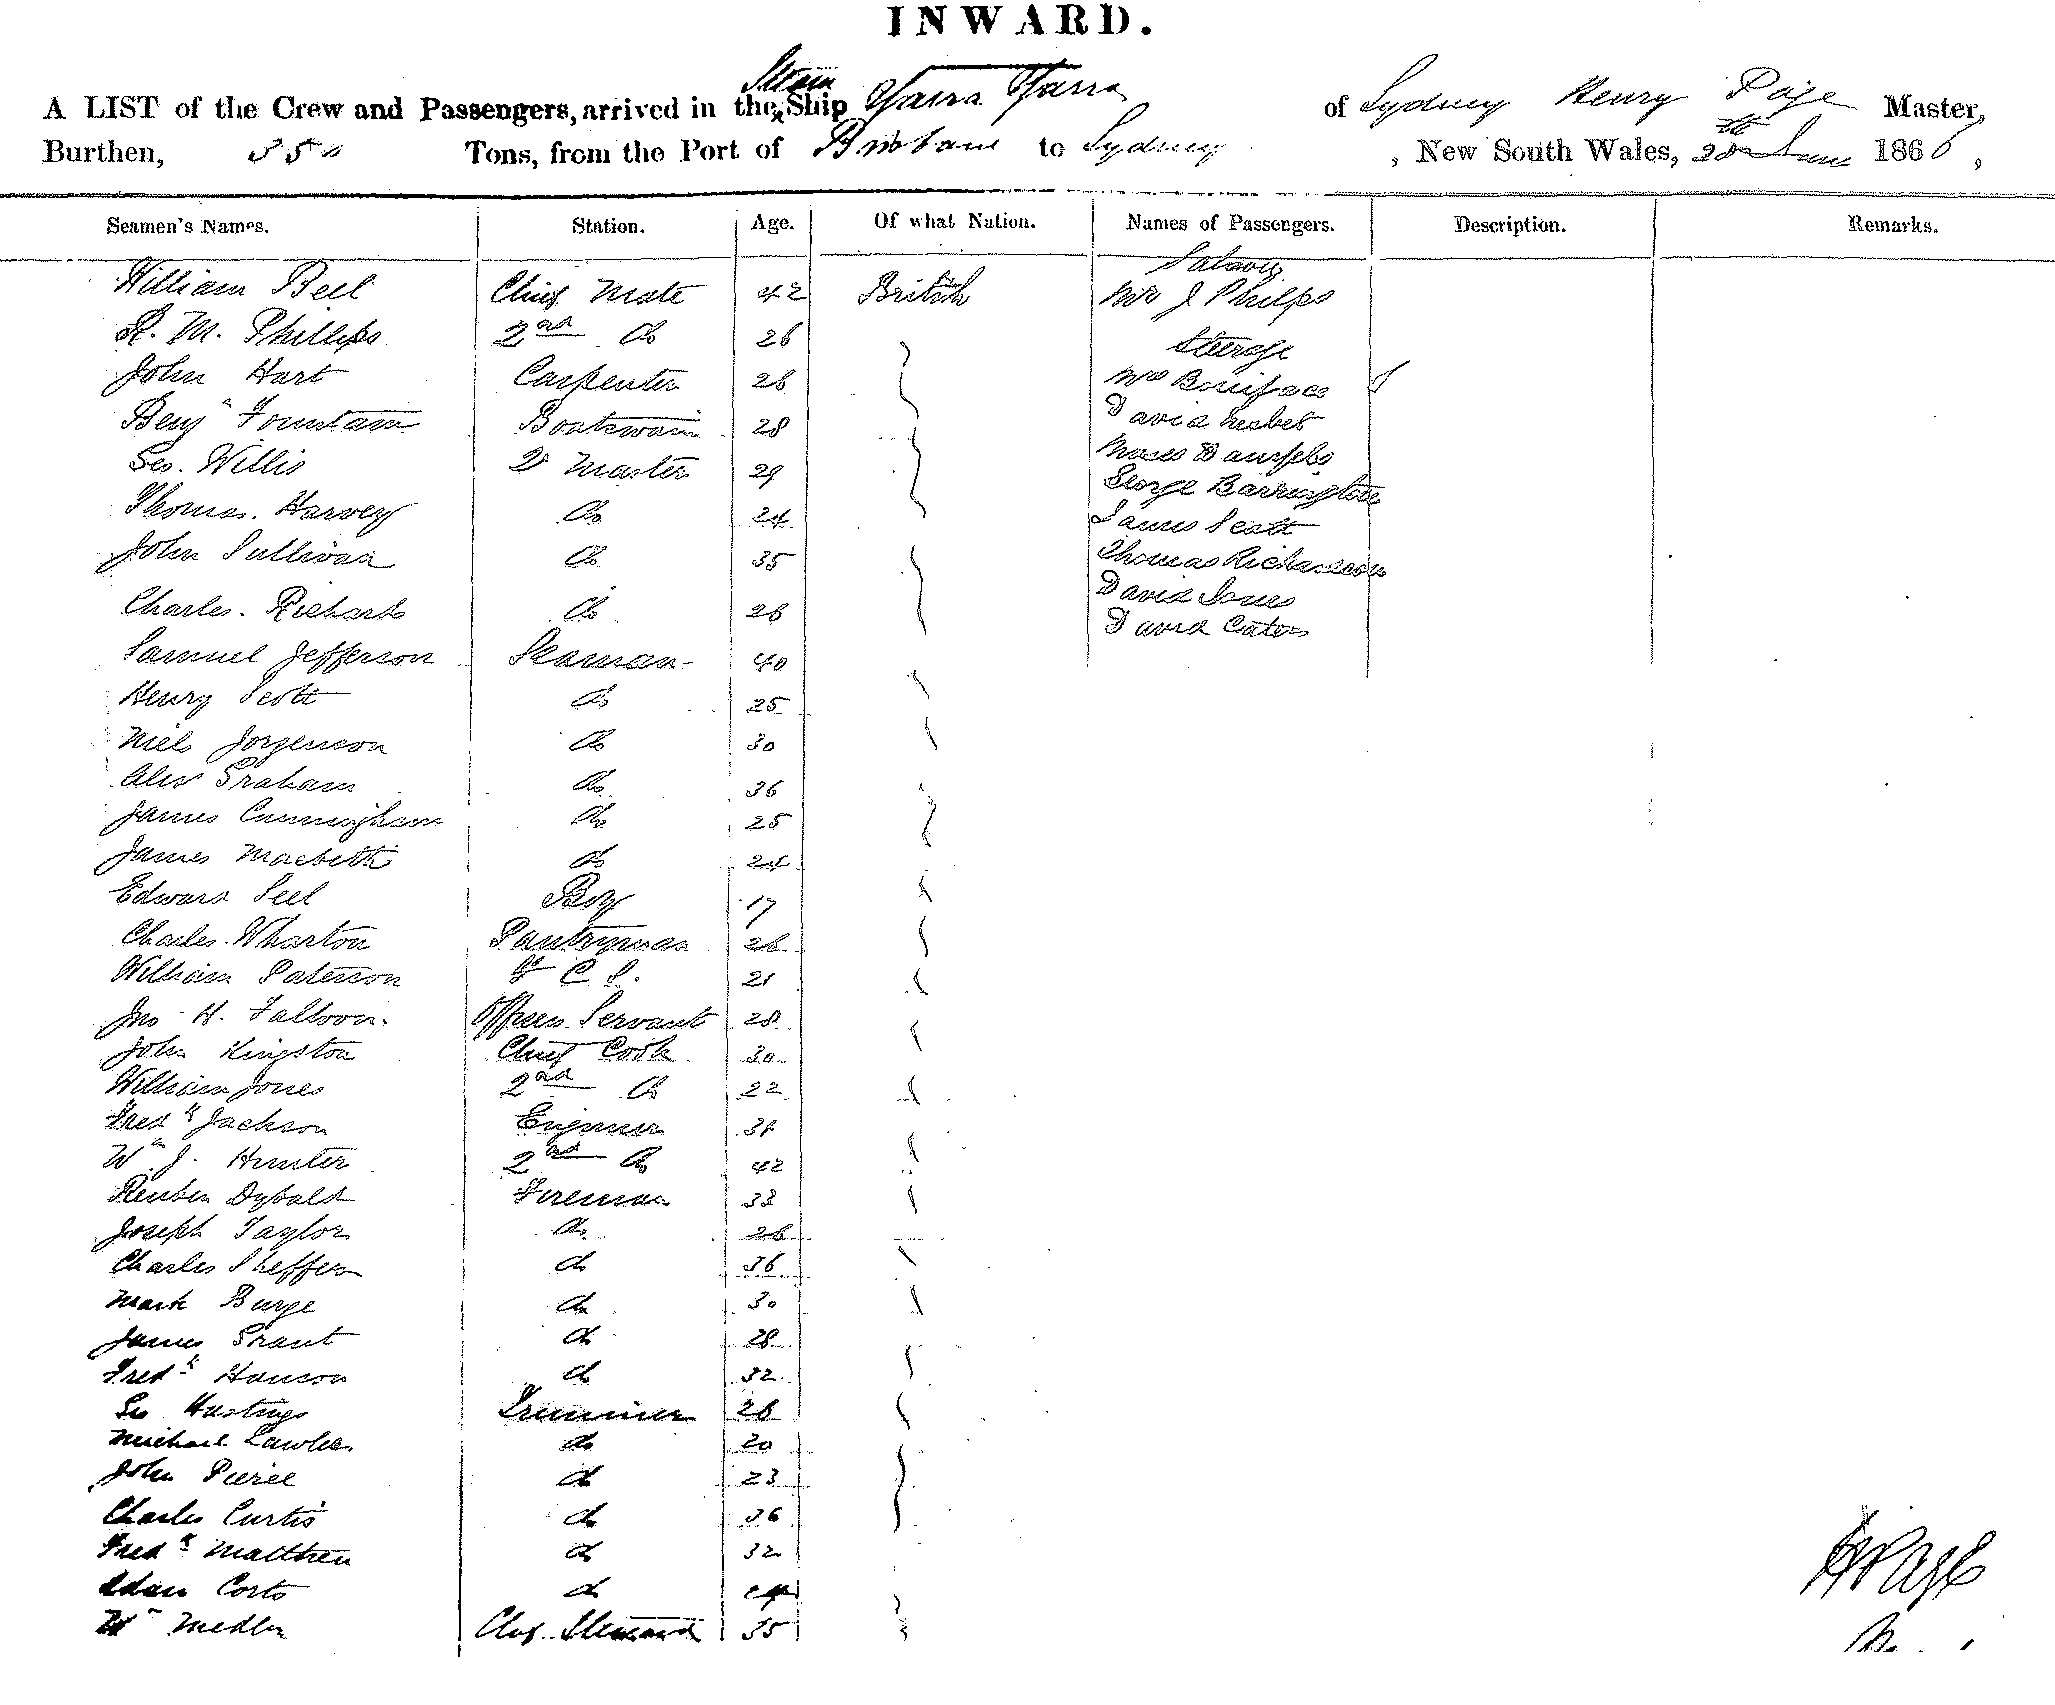 INWARD.
A LIST of the Crew and Passengers, arrived in the Steam Ship Yarra Yarra of Sydney Henry Page Master,
Burthen, 350 Tons, from the Port of Brisbane to Sydney, New South Wales, 28th 1866,
Seamen's Names. Station. Age. Of what Nation. Names of Passengers. Description. Remarks.
Saloon
William Bell Chief Mate 42 British Mr J Philps
R. M. Phillips 2nd Do 26
Steerage
John Hart Carpenter 26 Mrs Boniface
Benjn Fountain Boatswain 28 David Nesbet
Geo. Willis Qr Master 29 Moses
Thomas Harvey Do 24 George Barrington
James Scott
John Sullivan Do 35 Thomas Richardson
David Jones
Charles Richards Do 26 David Cater
Samuel Jefferson Seaman 40
Henry Scott Do 25
Niels Jorgenson Do 30
Alexr Graham Do 36
James Cunningham Do 25
James Macbeth Do 24
Edward Seel Boy 17
Charles Wharton Pantryman 26
William Paterson F C S. 21
Jno H. Falloon Officers Servant 28
John Kingston Chief Cook 30
William Jones 2nd Do 22
Fredk Jackson Engineer 38
Wm J. Hunter 2nd Do 42
Reuben Dybald Fireman 33
Joseph Taylor Do 26
Charles Sheffern Do 36
Mark Burge Do 30
James Grant Do 28
Fredk Hanson Do 32
Geo Hastings Trimmer 26
Michael Lawler Do 20
John Pierce Do 23
Charles Curtis Do 36
Fredk Matthew Do 32
Adam Corts Do
Wm Medler Chf Steward 35
H Page